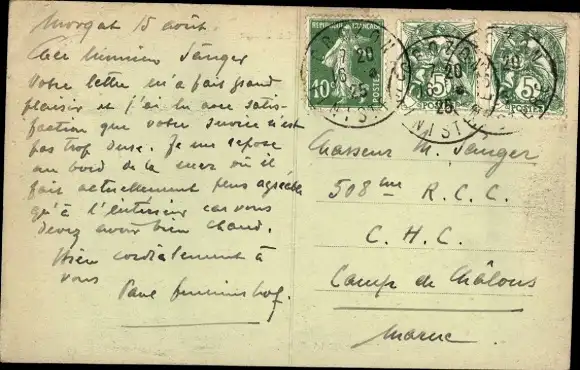 Morgat 15 août.
Cher Monsieur Sanger
Votre lettre m'a fait grand
plaisir et j'ai lu avec satis-
faction que votre service n'est
pas trop dur. Je me repose
au bord de la mer où il
fait actuellement plus agréable
qu'à l'intérieur car vous
devez avoir bien chaud.
Bien cordialement à
vous
Paul
RÉPUBLIQUE FRANÇAISE
10c
POSTES
5c
POSTES
5c
POSTES
CROZON
20
16
25
FINISTÈRE
Chasseur M. Sanger
508 me R. C. C.
C. H. C.
Camp de Châlons
Marne